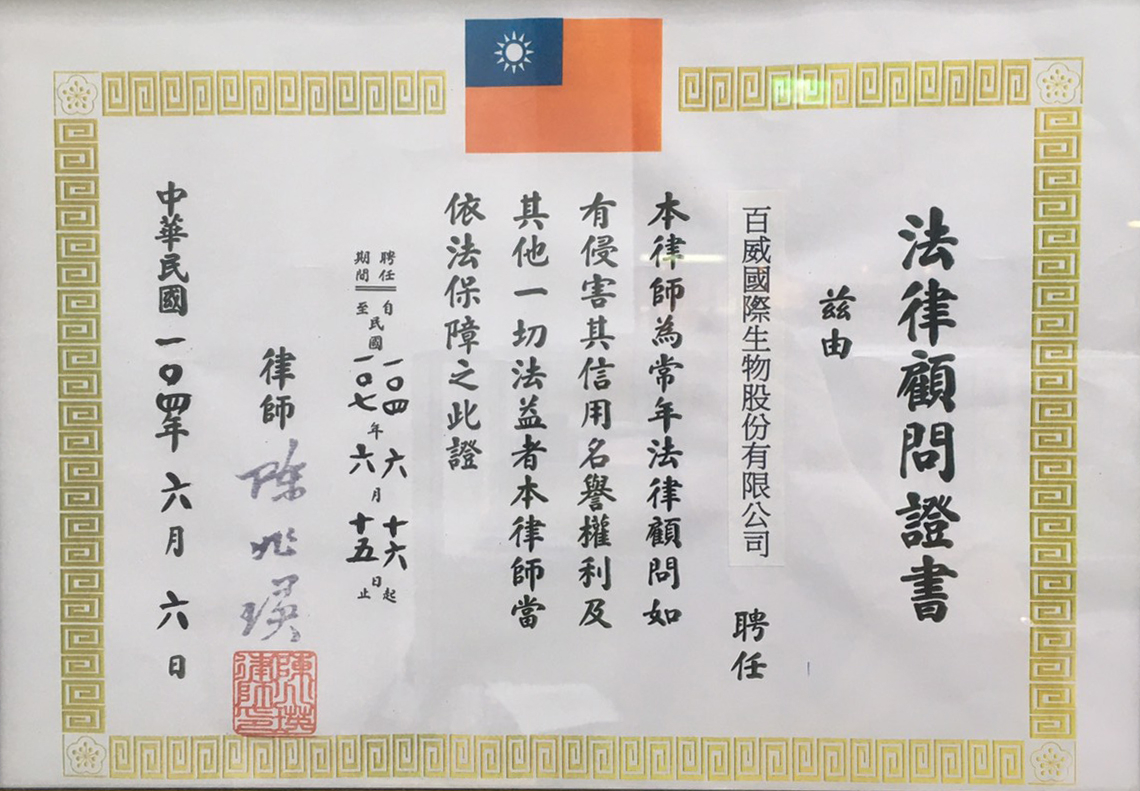 法律顧問證書
茲由
百威國際生物股份有限公司 聘任
本律師為常年法律顧問如
有侵害其信用名譽權利及
其他一切法益者本律師當
依法保障之此證
聘任期間
自民國一〇四年六月十六日起
至民國一〇七年六月十五日止
律師 陳兆瑛
陳兆瑛律師印
中華民國一〇四年六月六日